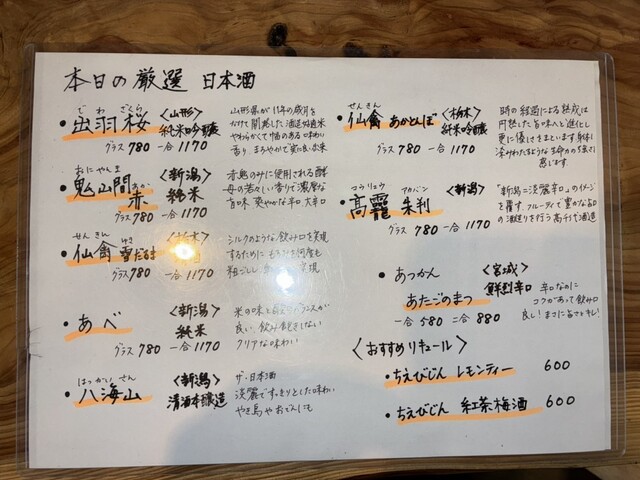 本日の厳選 日本酒
でわ ざくら
・出羽桜 〈山形〉
純米吟醸
グラス 780 一合 1170
山形県が11年の歳月を
かけて開発した酒造好適米
やわらかくて幅のある味わい
香り まろやかで実に良い出来
おにやんま
・鬼山間 赤 〈新潟〉
あか
純米
グラス 780 一合 1170
赤鬼のみに使用される酵
母の若々しい香りで濃厚な
旨味 爽やかな辛口 大辛口
せん きん ゆき
・仙禽 雪だるま 〈栃木〉
グラス 780 一合 1170
シルクのような飲み口を実現
するために
・あべ 〈新潟〉
純米
グラス 780 一合 1170
米の味と
良い 飲み飽きしない
クリアな味わい
はっかい さん
・八海山 〈新潟〉
清酒本醸造
ザ・日本酒
淡麗ですっきりとした味わい
やき鳥やおでんにも
せんきん
・仙禽 あかとんぼ 〈栃木〉
純米吟醸
グラス 780 一合 1170
時の経過による熟成は
円熟した旨味へと進化し
更に優しさをまといます
感じます
コウリュウ アカバン
・高龗 朱判 〈新潟〉
グラス 780 一合 1170
「新潟=淡麗辛口」のイメージ
を覆す。フルーティで豊かな旨口
の酒造りを行う高千代酒造
・あつかん 〈宮城〉
あたごのまつ 鮮烈辛口
一合 580 二合 880
辛口なのに
コクがあって飲み口
良し!まさに旨さトキレ!
〈おすすめリキュール〉
・ちえびじん レモンティー 600
・ちえびじん 紅茶梅酒 600